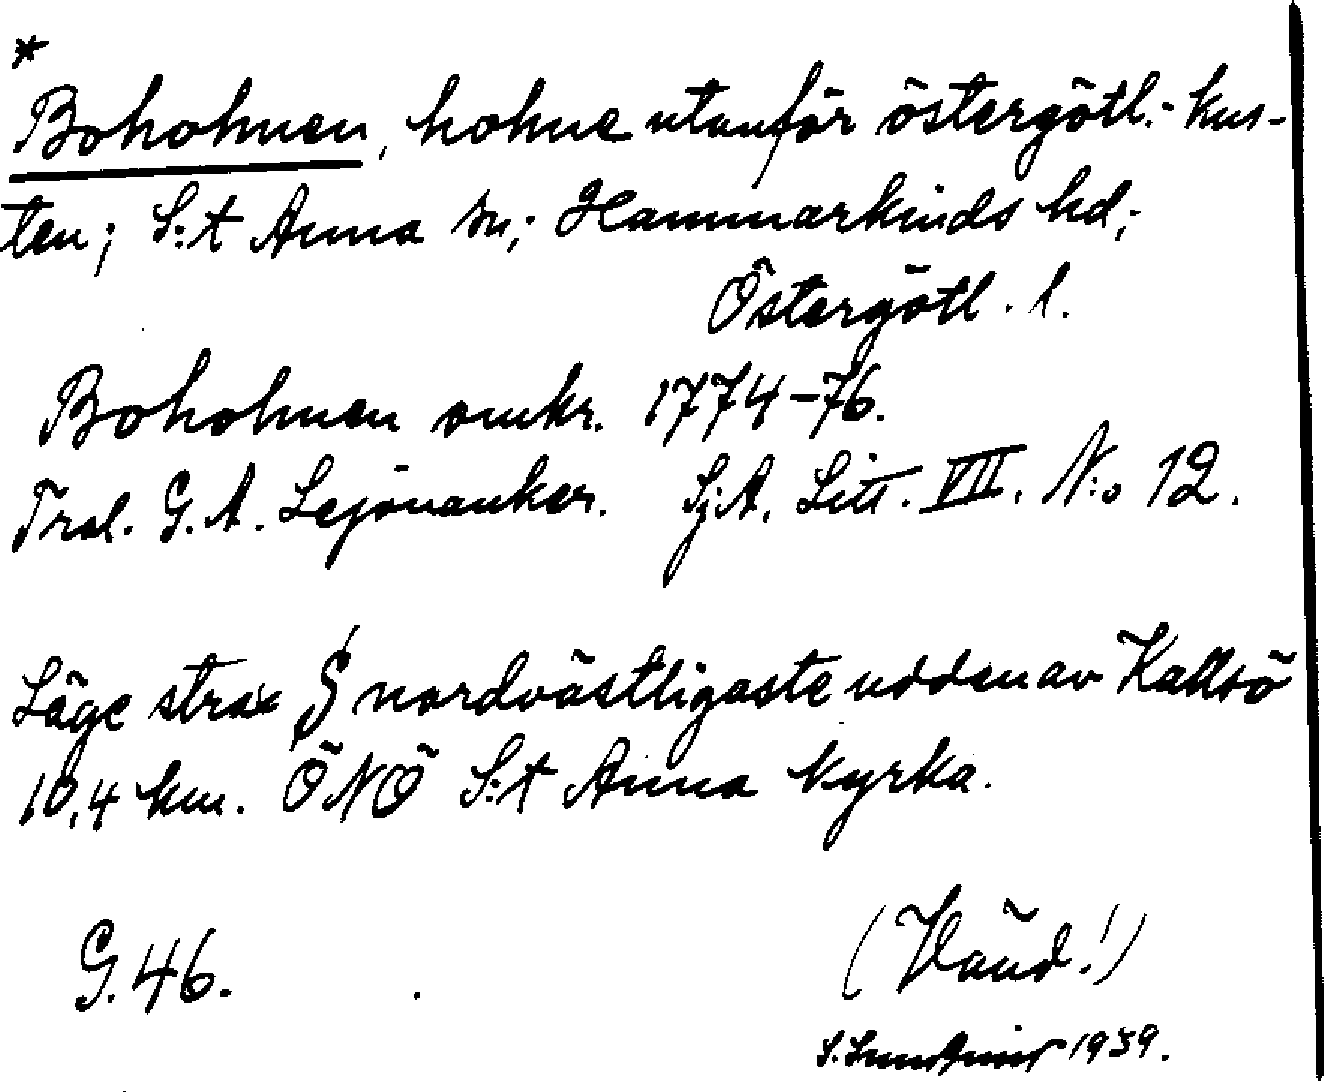 *
Boholmen, holme utanför östergötl.-kus-
ten; S:t Anna sn; Hammarkinds hd;
Östergötl. l.
Boholmen omkr. 1774-76.
Trol. G. A. Lejonanker. Sj.A. Litt. VII. N:o 12.
Läge strax S nordvästligaste udden av Kallsö
10,4 km. ÖNÖ S:t Anna kyrka.
G. 46.
(Vänd!)
S. 1939.